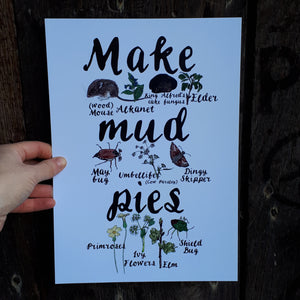 Make
(Wood) Mouse
Alkanet
King Alfred's cake fungus
Elder
mud
May bug
Umbellifer
(Cow Parsley)
Dingy Skipper
pies
Primroses
Ivy Flowers
Elm
Shield Bug